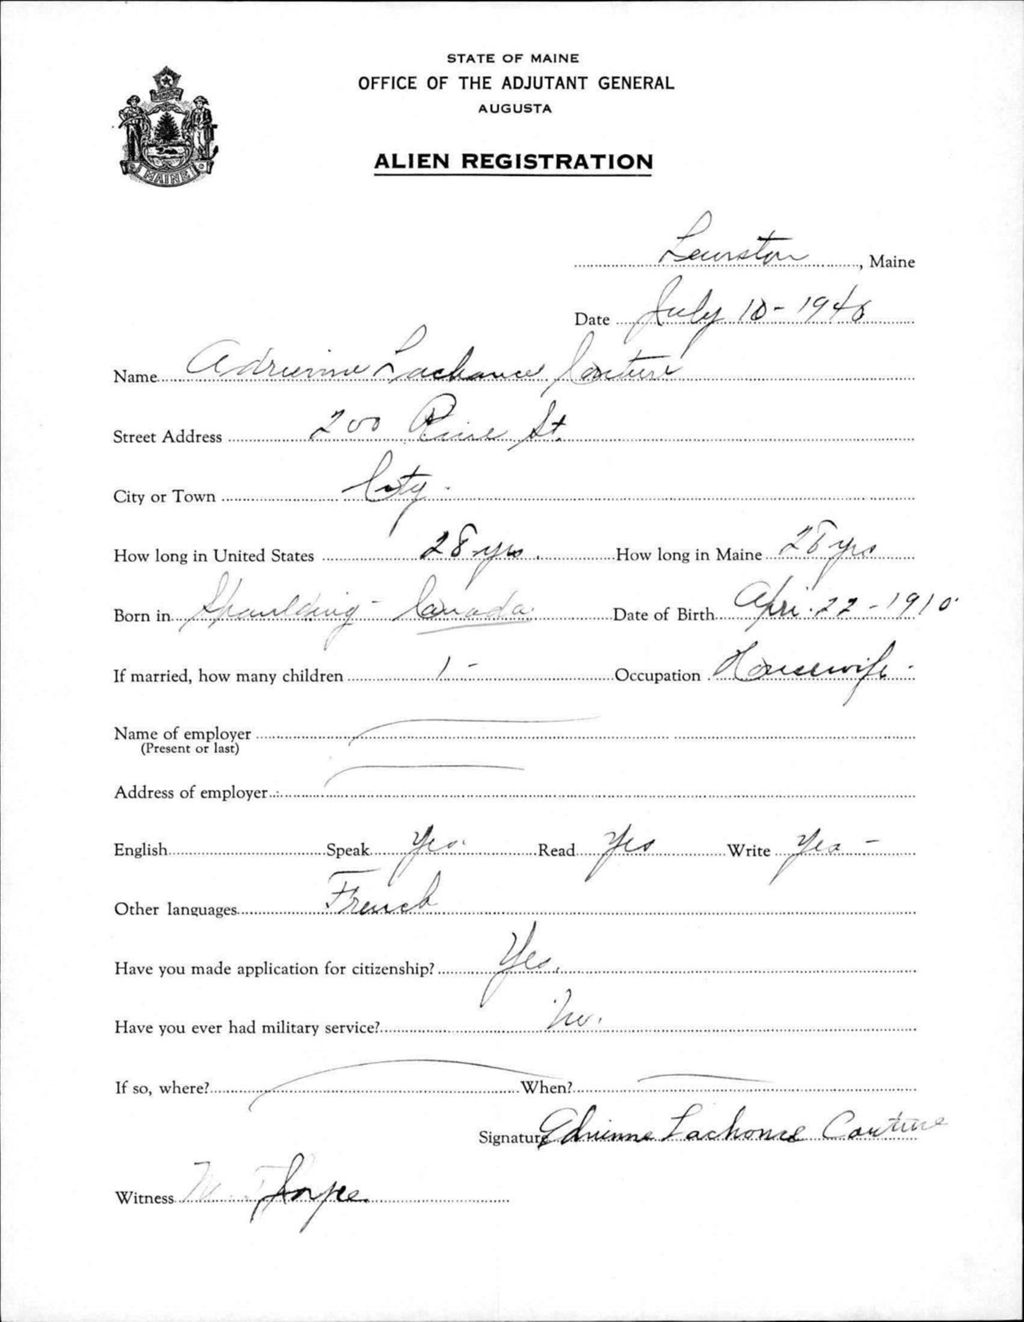 STATE OF MAINE
OFFICE OF THE ADJUTANT GENERAL
AUGUSTA
MAINE
ALIEN REGISTRATION
Lewiston, Maine
Date July 10 - 1940
Name Adrienne Lachance Couture
Street Address 200 Pine St.
City or Town City.
How long in United States 28 yrs. How long in Maine 28 yrs
Born in Spaulding - Canada. Date of Birth Apri. 22 - 1910
If married, how many children 1 - Occupation Housewife.
Name of employer
(Present or last)
Address of employer
English Speak Yes. Read Yes Write Yes -
Other languages French
Have you made application for citizenship? Yes.
Have you ever had military service? No.
If so, where? When?
Signature Adrienne Lachance Couture
Witness M. Thorpe